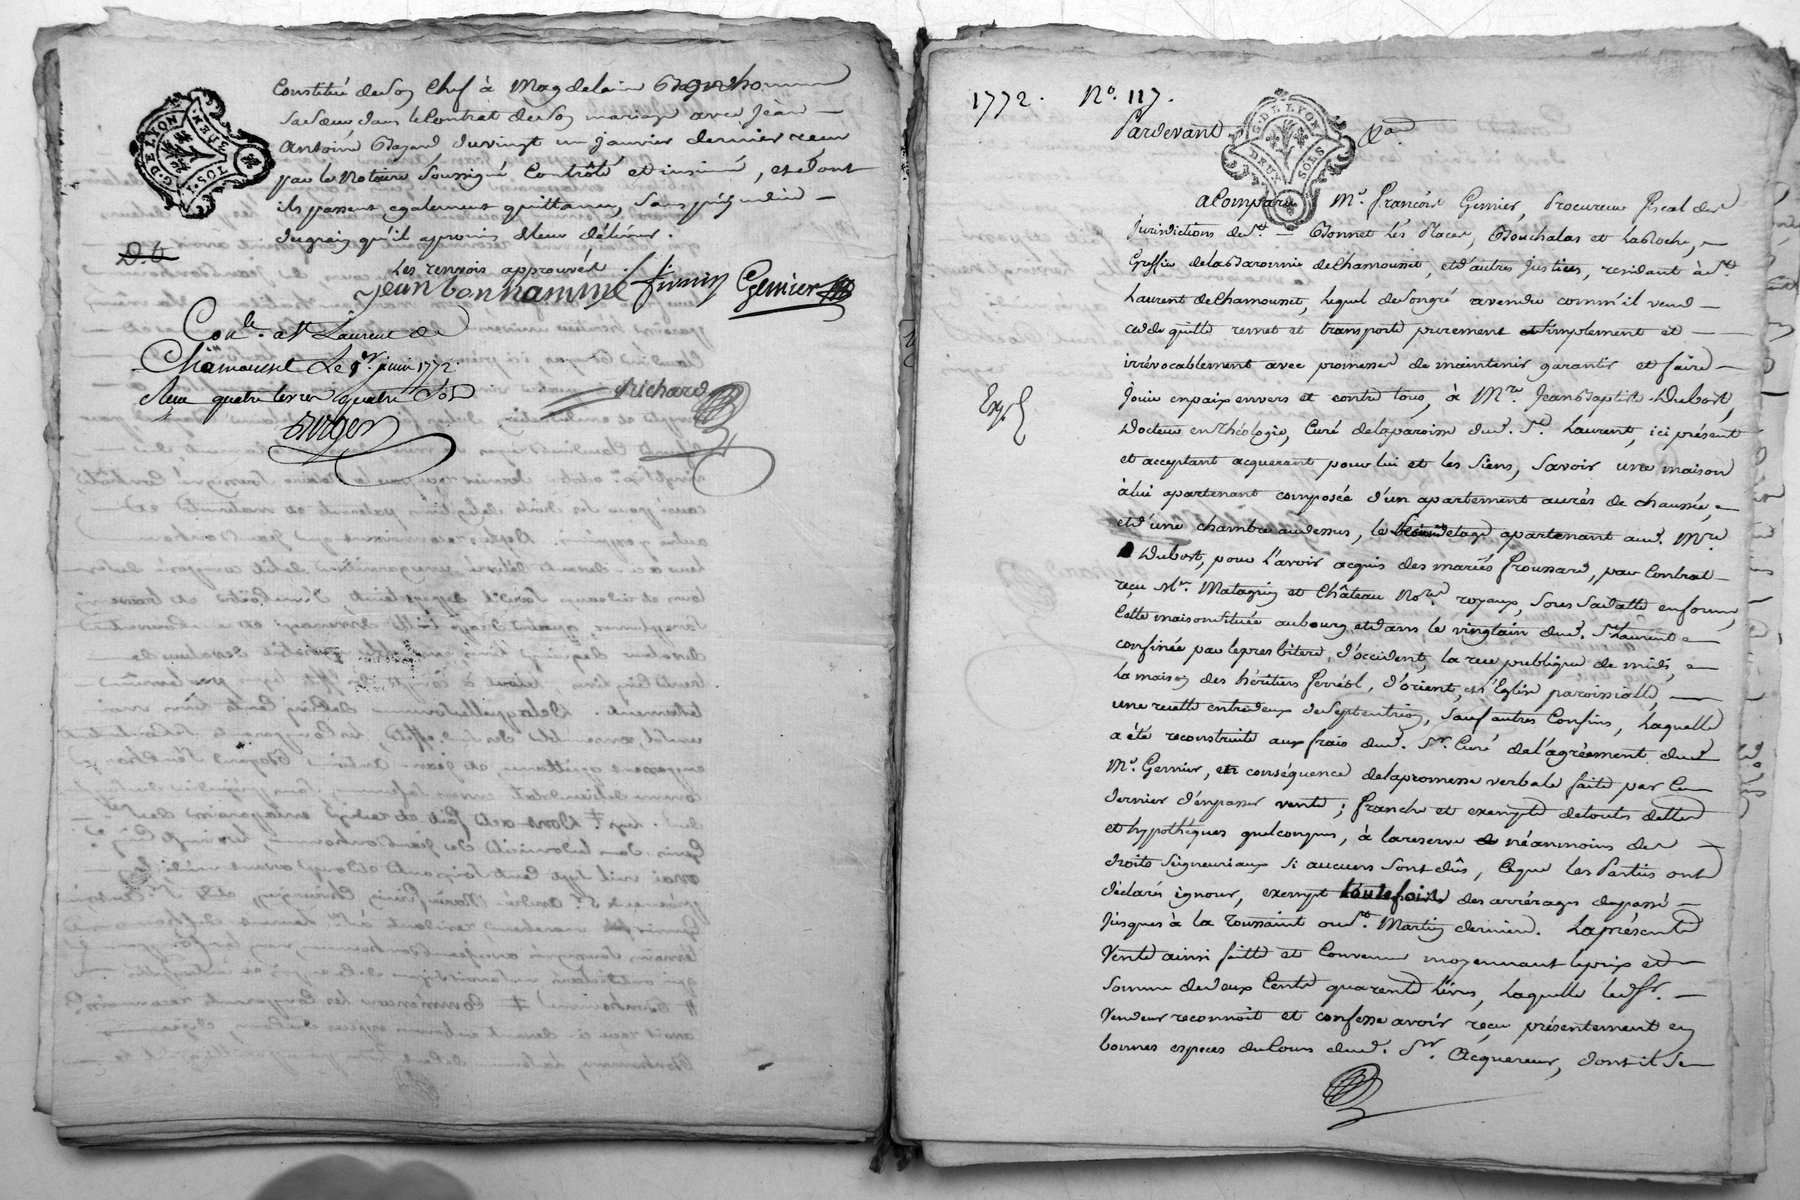 Constitué de son Chef à Magdelaine Bonhomme
sa sœur dans le Contrat de son mariage avec Jean
Antoine Bazard du vingt un janvier dernier reçu
par le Notaire soussigné Contrôlé et insinué, et dont
ils passent également quittance, sans préjudice
du grain qu'il a promis de leur délivrer.
D.t.
Les renvois approuvés
jean bonhamme firmin Gernier
Con.le à St Laurent de
Chamousset Le 1er juin 1772.
Reçu quatre livres quatre sols
Richard
G. DE LYON
NEUF
1772. No. 117.
Pardevant &a.
G. DE LYON
DEUX SOLS
a Comparu Mr. françois Gernier, Procureur fiscal des
Jurisdictions de St. Bonnet Les Places, Bouchalas et LaRoche,
Greffier de la Baronnie de Chamousset, et d'autres Justices, residant à St.
Laurent de Chamousset, lequel de son gré a vendu comm'il vend
cede quitte remet et transporte purement et simplement et
irrévocablement avec promesse de maintenir garantir et faire
Jouir en paix envers et contre tous, à Mre. Jean Baptiste Dubost,
Exp.
Docteur en Théologie, Curé de la paroisse dud. St. Laurent, ici présent
et acceptant acquerant pour lui et les siens, Savoir une maison
à lui apartenant composée d'un apartement au rés de chaussée,
et d'une chambre au dessus, le étage apartenant aud. Mre
Dubost, pour l'avoir acquis des mariés froussard, par Contrat
reçu Mes. Matagrin et Château Nores. royaux, sous sa datte en forme,
Cette maison située au bourg et dans le vingtain dud. St Laurent
confinée par le presbitere, d'occident, la rue publique de midi,
La maison des héritiers ferréol, d'orient, et l'Eglise paroissialle,
une ruette entredeux de Septentrion, Sauf autres Confins, Laquelle
a été reconstruite aux frais dud. Sr. Curé de l'agréement dud.
Mr. Gernier, en conséquence de la promesse verbale faite par Ce
dernier d'en passer vente; franche et exempte de toutes dettes
et hypothéques quelconques, à la reserve néanmoins des
droits Seigneuriaux si aucuns sont dûs, Ce que les Parties ont
déclaré ignorer, exempt toutefois des arrérages du passé
Jusques à la toussaint ou St. Martin dernier. La présente
Vente ainsi faitte et Convenue moyennant le prix et
Somme de deux Cents quarente Livres, Laquelle led. Sr.
Vendeur reconnoit et confesse avoir reçu présentement en
bonnes especes du Cours dud. Sr. Acquereur, dont il se